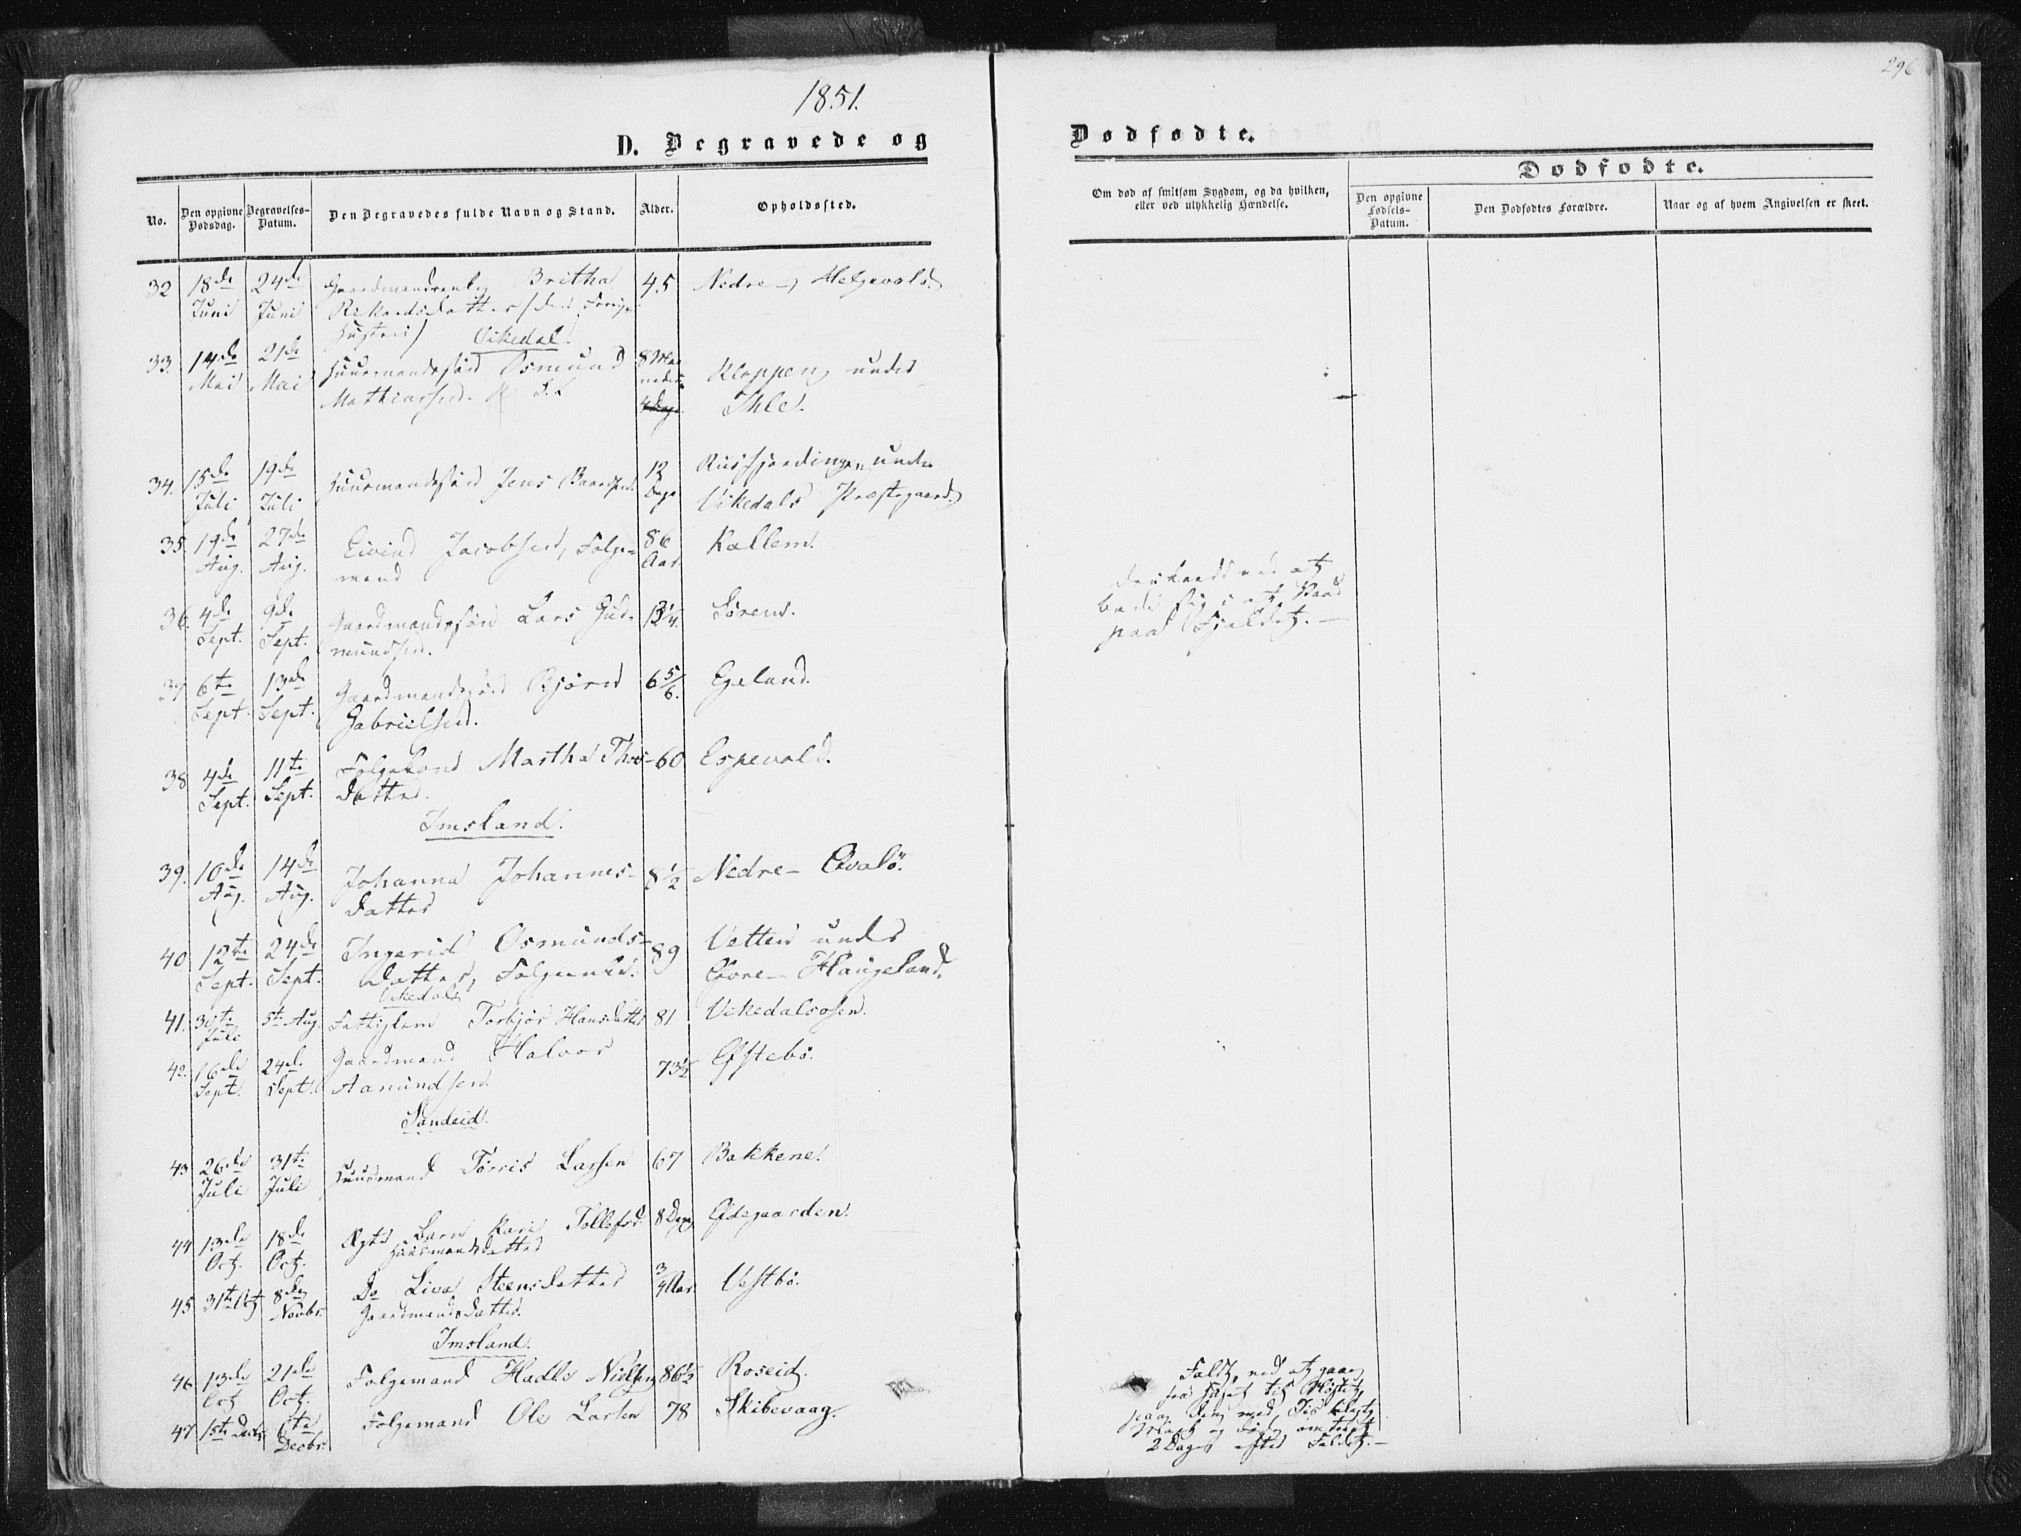 296
1851.
D. Begravede og
Dødfødte.
No.
Den opgivne Dødsdag.
Begravelses-Datum.
Den Begravedes fulde Navn og Stand.
Alder.
Opholdssted.
Om død af smitsom Sygdom, og da hvilken, eller ved ulykkelig Hændelse.
Dødfødte.
Den opgivne Fødsels-Datum.
Den Dødfødtes Forældre.
Naar og af hvem Angivelsen er skeet.
32 18de 24de Britha 45 Nedre- Helgevold
Juni Juni
Vikedal.
33. 14de 21de Huusmandssøn Osmund 8 Maa-
Mai Mai Mathiassen. neder Kloppen under
4 Dage Ihle.
34. 15de 19de Huusmandssøn Jens Baardsen 12 under
Juli Juli Dage Vikedals Præstegaard
35. 19de 27de Eivind Jacobsen, Folge- 86 Kallem.
Aug. Aug. mand Aar
36. 4de 9de Gaardmandssøn Lars Gud- Sørens.
Sept. Sept. mundsen.
at
bade sig i et Vand
paa Fjeldet. —
37 6te 13de Gaardmandssøn Bjørn 6 5/6. Egeland.
Sept. Sept. Gabrielsen.
38 4de 11te Folgekone Martha Thor- 60 Espevold.
Sept. Sept. datter.
Imsland.
39. 10de 14de Johanna Johannes- 8½ Nedre- Qvalø.
Aug. Aug. datter
40 12te 24de Ingerid Osmunds- 89 Vetten under
Sept. Sept. datter, Øvre- Haugeland.
Vikedal
41. 30te 5te Aug. Fattiglem Torbjør Hansdatter 81 Vikedalsosen.
Juli
42. 16de 24de Gaardmand Halvor 73½ Øfstebø.
Sept. Sept. Aamundsen
Sandeid.
43 26de 31te Huusmand Tørris Larsen 67 Bakkene.
Juli Juli
44 13de 18de Ægte Barn Kari Tollefsd. 8 Dage Ødegaarden.
Oct. Oct. Huusmandsdatter
45 31te Oct 8de Do Liva Steensdatter 3/4 Aar Vestbø.
Novbr. Gaardmandsdatter.
Imsland.
46 13de 21de Folgemand Hadle Nielsen 86½ Roseid.
Oct Oct.
47 1ste Decbr. 6te Folgemand Ole Larsen 78 Skibevaag.
Decbr.
Faldt, ved at gaae
fra Huset til
2 Dage efter Faldet. —